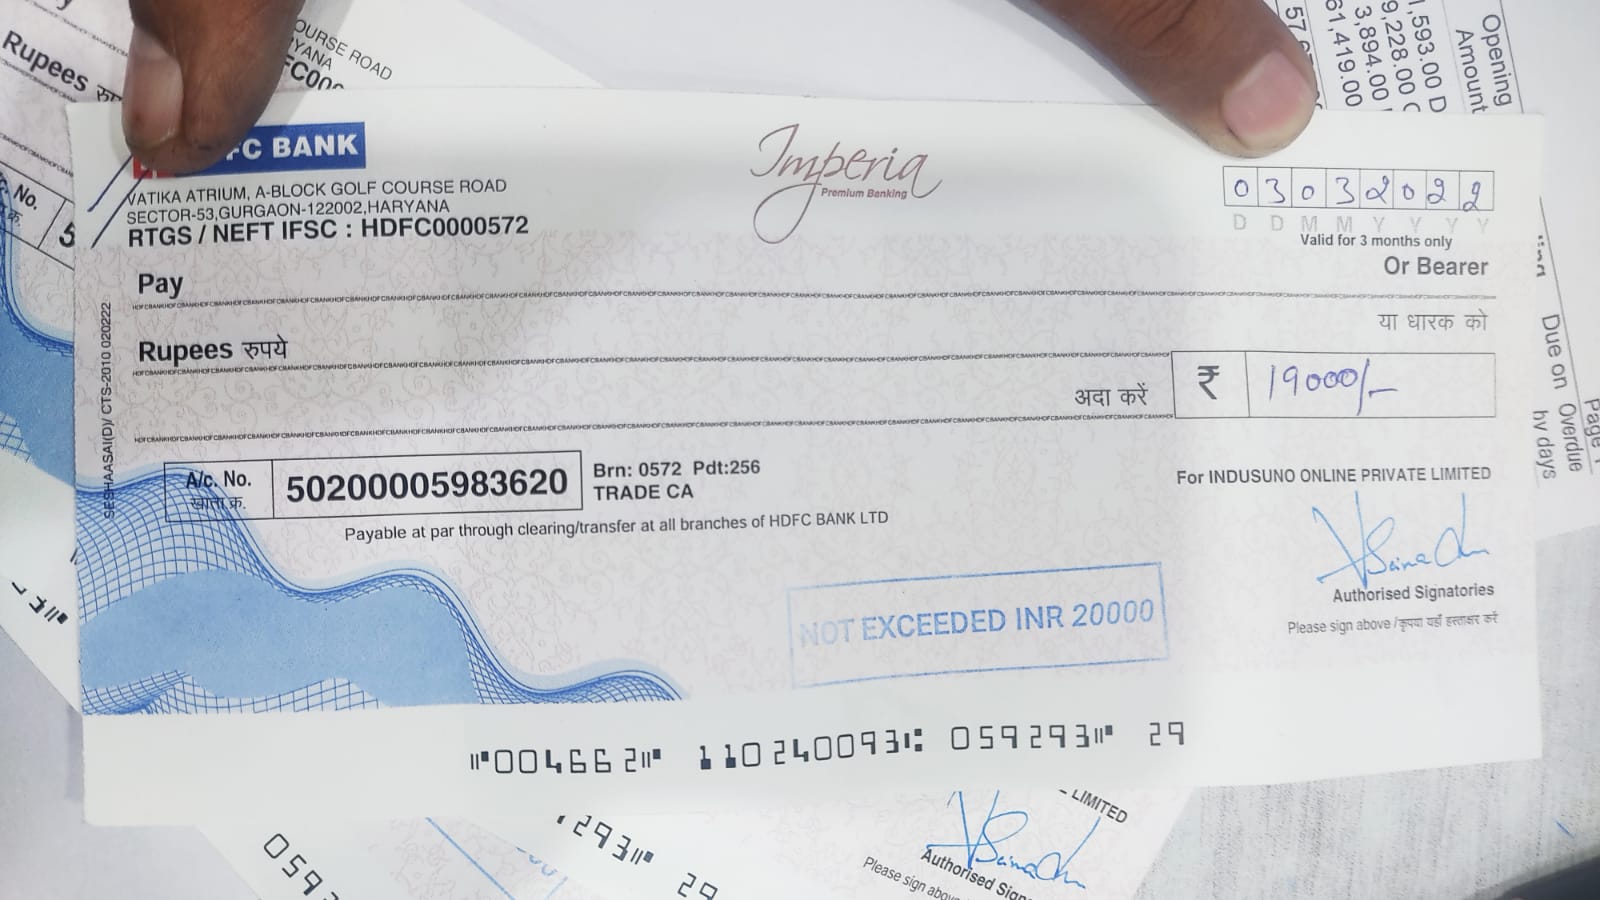 Rupees
OURSE ROAD
YANA
No.
5
Opening
Amount
,593.00 D
9,228.00
3,894.00
61,419.00
57,
FC BANK
VATIKA ATRIUM, A-BLOCK GOLF COURSE ROAD
SECTOR-53,GURGAON-122002,HARYANA
RTGS / NEFT IFSC : HDFC0000572
Imperia
Premium Banking
0 3 0 3 2 0 2 2
D D M M Y Y Y Y
Valid for 3 months only
Pay
Or Bearer
या धारक को
Rupees रुपये
अदा करें
₹ 19000/-
SESHAASAI(D)/ CTS-2010 020222
A/c. No.
खाता क्र.
50200005983620
Brn: 0572 Pdt:256
TRADE CA
Payable at par through clearing/transfer at all branches of HDFC BANK LTD
For INDUSUNO ONLINE PRIVATE LIMITED
Authorised Signatories
Please sign above /कृपया यहाँ हस्ताक्षर करें
NOT EXCEEDED INR 20000
⑈004662⑈ 110240093⑆ 059293⑈ 29
Due on
Overdue
by days
Page
LIMITED
293⑈ 29
0593
Authorised Sign
Please sign above